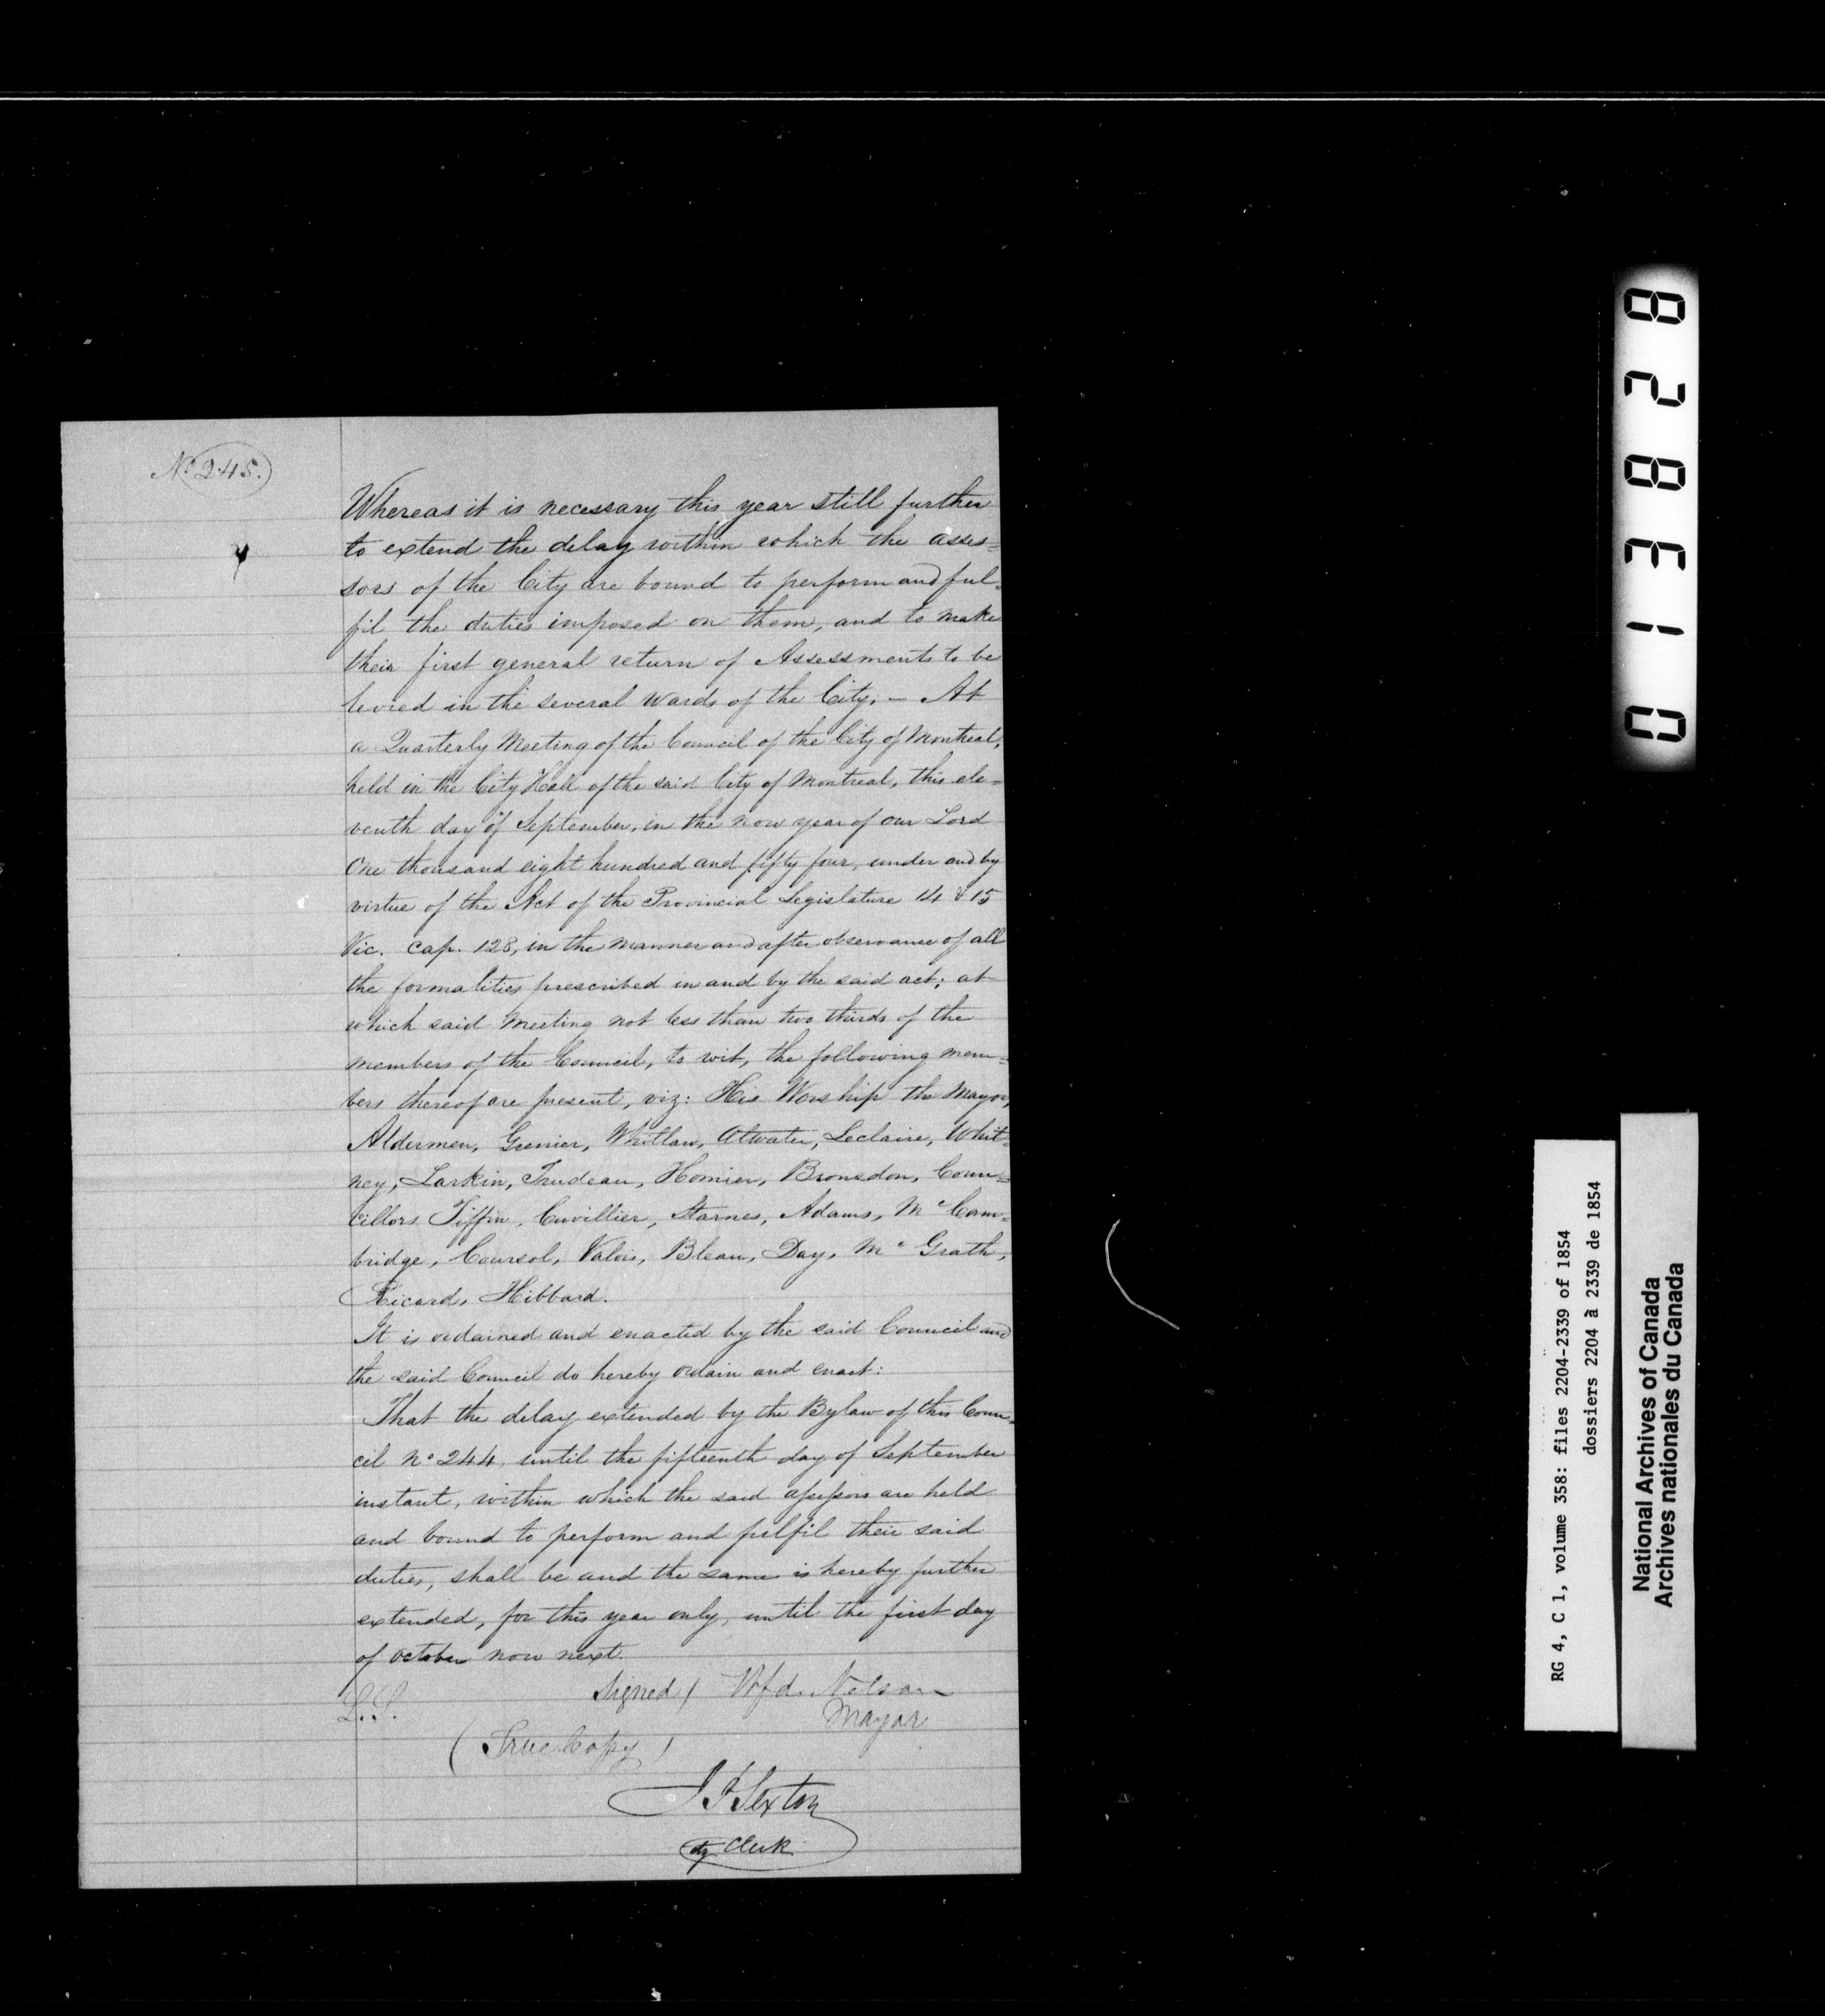 No 245.
Whereas it is necessary this year still further
to extend the delay within which the asses=
sors of the City are bound to perform and ful=
fil the duties imposed on them, and to make
their first general return of Assessments to be
levied in the several Wards of the City, — At
a Quarterly Meeting of the Council of the City of Montreal,
held in the City Hall of the said City of Montreal, this ele=
venth day of September, in the now year of our Lord
One thousand eight hundred and fifty four, under and by
virtue of the Act of the Provincial Legislature 14 & 15
Vic. Cap. 128, in the manner and after observance of all
the formalities prescribed in and by the said act; at
which said Meeting not less than two thirds of the
members of the Council, to wit, the following mem=
bers thereof are present, viz: His Worship the Mayor,
Aldermen, Grenier, Whitlaw, Atwater, Leclaire, Whit=
ney, Larkin, Trudeau, Homier, Bronsdon, Coun=
cillors Tiffin, Cuvillier, Starnes, Adams, Mc Cam=
bridge, Coursol, Valois, Bleau, Day, Mc Grath,
Ricard, Hibbard.
It is ordained and enacted by the said Council and
the said Council do hereby ordain and enact:
That the delay extended by the Bylaw of this Coun=
cil No 244, until the fifteenth day of September
instant, within which the said assessors are held
and bound to perform and fulfil their said
duties, shall be and the same is hereby further
extended, for this year only, until the first day
of October now next.
Signed) Wfd. Nelson
L.S. Mayor
(True Copy)
J P Sexton
City Clerk
013828
RG 4, C 1, volume 358: files 2204-2339 of 1854
dossiers 2204 à 2339 de 1854
National Archives of Canada
Archives nationales du Canada